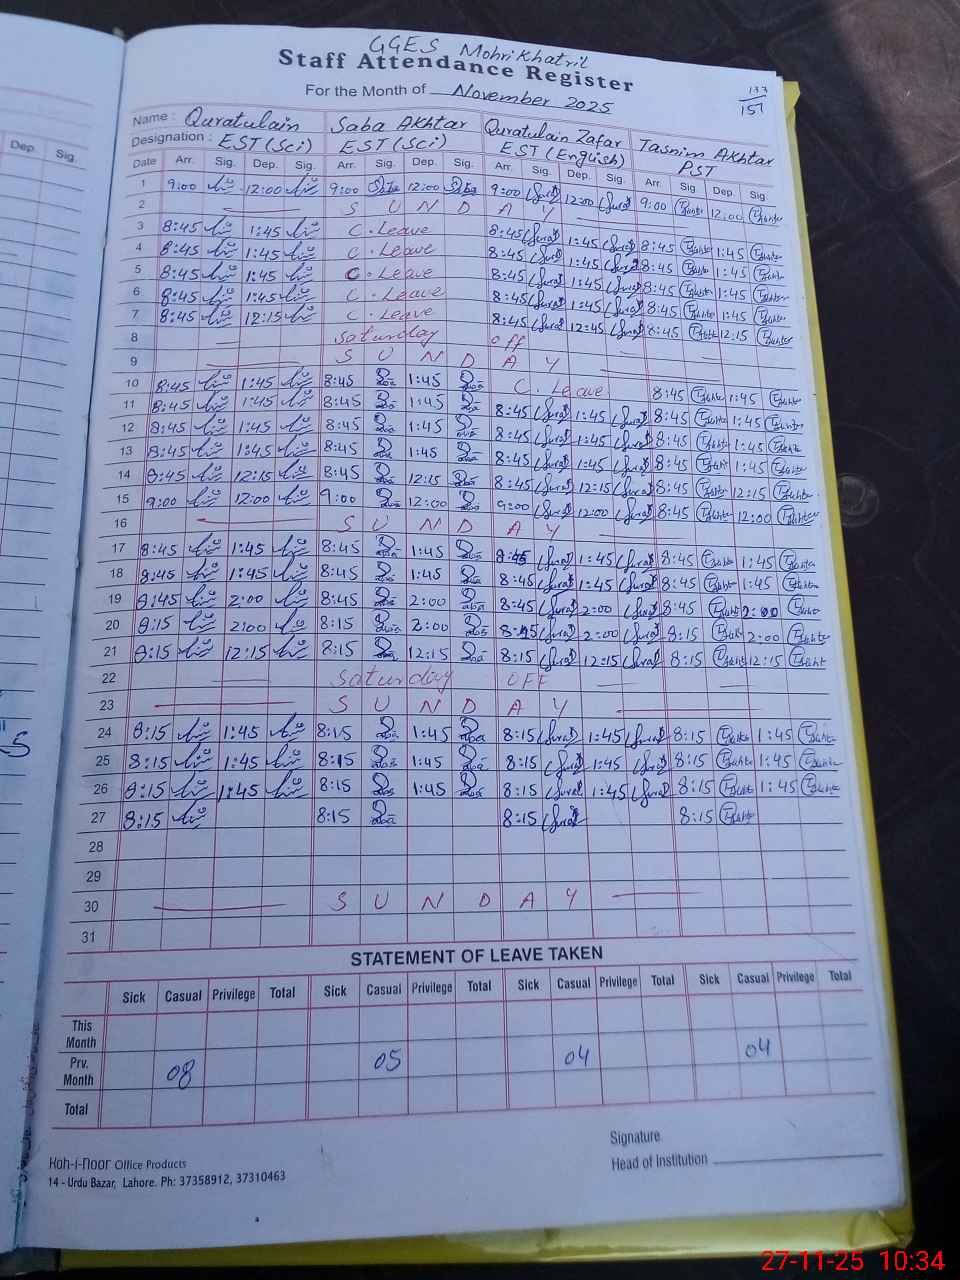 GGES Mohri Khatril
Staff Attendance Register
For the Month of November 2025
133
157
Name : Quratulain Saba Akhtar Quratulain Zafar Tasnim Akhtar
Designation : EST (Sci) EST (Sci) EST (English) PST
Date Arr. Sig. Dep. Sig. Arr. Sig. Dep. Sig. Arr. Sig. Dep. Sig. Arr. Sig. Dep. Sig.
1 9:00 12:00 9:00 Saba 12:00 Saba 9:00 12:00 9:00 12:00
2 S U N D A Y
3 8:45 1:45 C. Leave 8:45 1:45 8:45 1:45
4 8:45 1:45 C. Leave 8:45 1:45 8:45 1:45
5 8:45 1:45 C. Leave 8:45 1:45 8:45 1:45
6 8:45 1:45 C. Leave 8:45 1:45 8:45 1:45
7 8:45 12:15 C. Leave 8:45 12:45 8:45 12:15
8 Saturday off
9 S U N D A Y
10 8:45 1:45 8:45 1:45 C. Leave 8:45 1:45
11 8:45 1:45 8:45 1:45 8:45 1:45 8:45 1:45
12 8:45 1:45 8:45 1:45 8:45 1:45 8:45 1:45
13 8:45 1:45 8:45 1:45 8:45 1:45 8:45 1:45
14 8:45 12:15 8:45 12:15 8:45 12:15 8:45 12:15
15 9:00 12:00 9:00 12:00 9:00 12:00 8:45 12:00
16 S U N D A Y
17 8:45 1:45 8:45 1:45 8:45 1:45 8:45 1:45
18 8:45 1:45 8:45 1:45 8:45 1:45 8:45 1:45
19 8:45 2:00 8:45 2:00 8:45 2:00 8:45 2:00
20 8:15 2:00 8:15 2:00 2:00 8:15 2:00
21 8:15 12:15 8:15 12:15 8:15 12:15 8:15 12:15
22 Saturday OFF
23 S U N D A Y
24 8:15 1:45 8:15 1:45 8:15 1:45 8:15 1:45
25 8:15 1:45 8:15 1:45 8:15 1:45 8:15 1:45
26 8:15 1:45 8:15 1:45 8:15 1:45 8:15 1:45
27 8:15 8:15 8:15 8:15
28
29
30 S U N D A Y
31
STATEMENT OF LEAVE TAKEN
Sick Casual Privilege Total Sick Casual Privilege Total Sick Casual Privilege Total Sick Casual Privilege Total
This Month
Prv. Month 08 05 04 04
Total
Signature
Head of Institution
Koh-i-noor Office Products
14 - Urdu Bazar, Lahore. Ph: 37358912, 37310463
Dep. Sig.
27-11-25 10:34